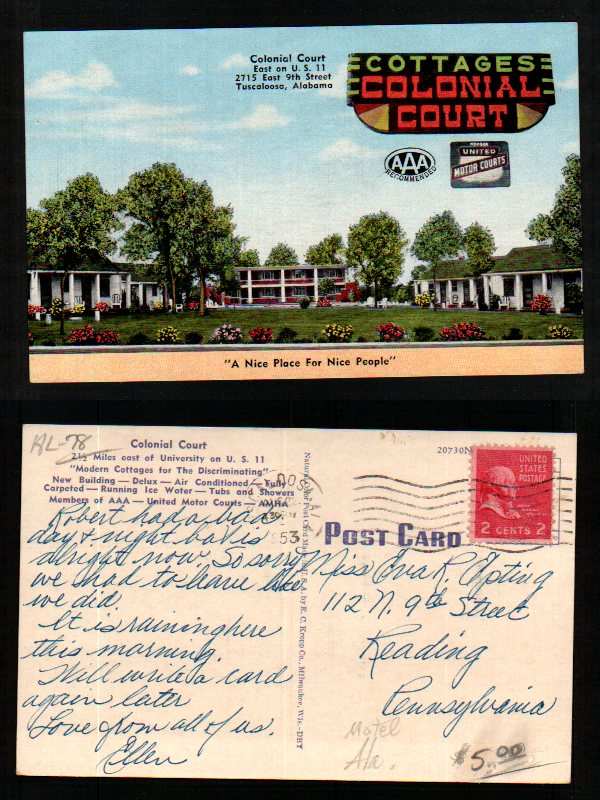 Colonial Court
East on U. S. 11
2715 East 9th Street
Tuscaloosa, Alabama
COTTAGES
COLONIAL
COURT
AAA
RECOMMENDED
MEMBER
UNITED
MOTOR COURTS
"A Nice Place For Nice People"
AL-78
Colonial Court
2½ Miles east of University on U. S. 11
"Modern Cottages for The Discriminating"
New Building — Delux — Air Conditioned — Fully
Carpeted — Running Ice Water — Tubs and Showers
Members of AAA — United Motor Courts — AMHA
Robert had a bad
day & night but is
alright now. So sorry
we had to leave like
we did.
It is raining here
this morning.
Will write a card
again later
Love from all of us.
Ellen
Natural Color Post Card Made in U. S. A. by E. C. Kropp Co., Milwaukee, Wis.-DBT
20730N
POST CARD
UNITED
STATES
POSTAGE
2 CENTS 2
Miss Eva R. Epting
112 N. 9th Street
Reading
Pennsylvania
Motel
Ala.
$5.00